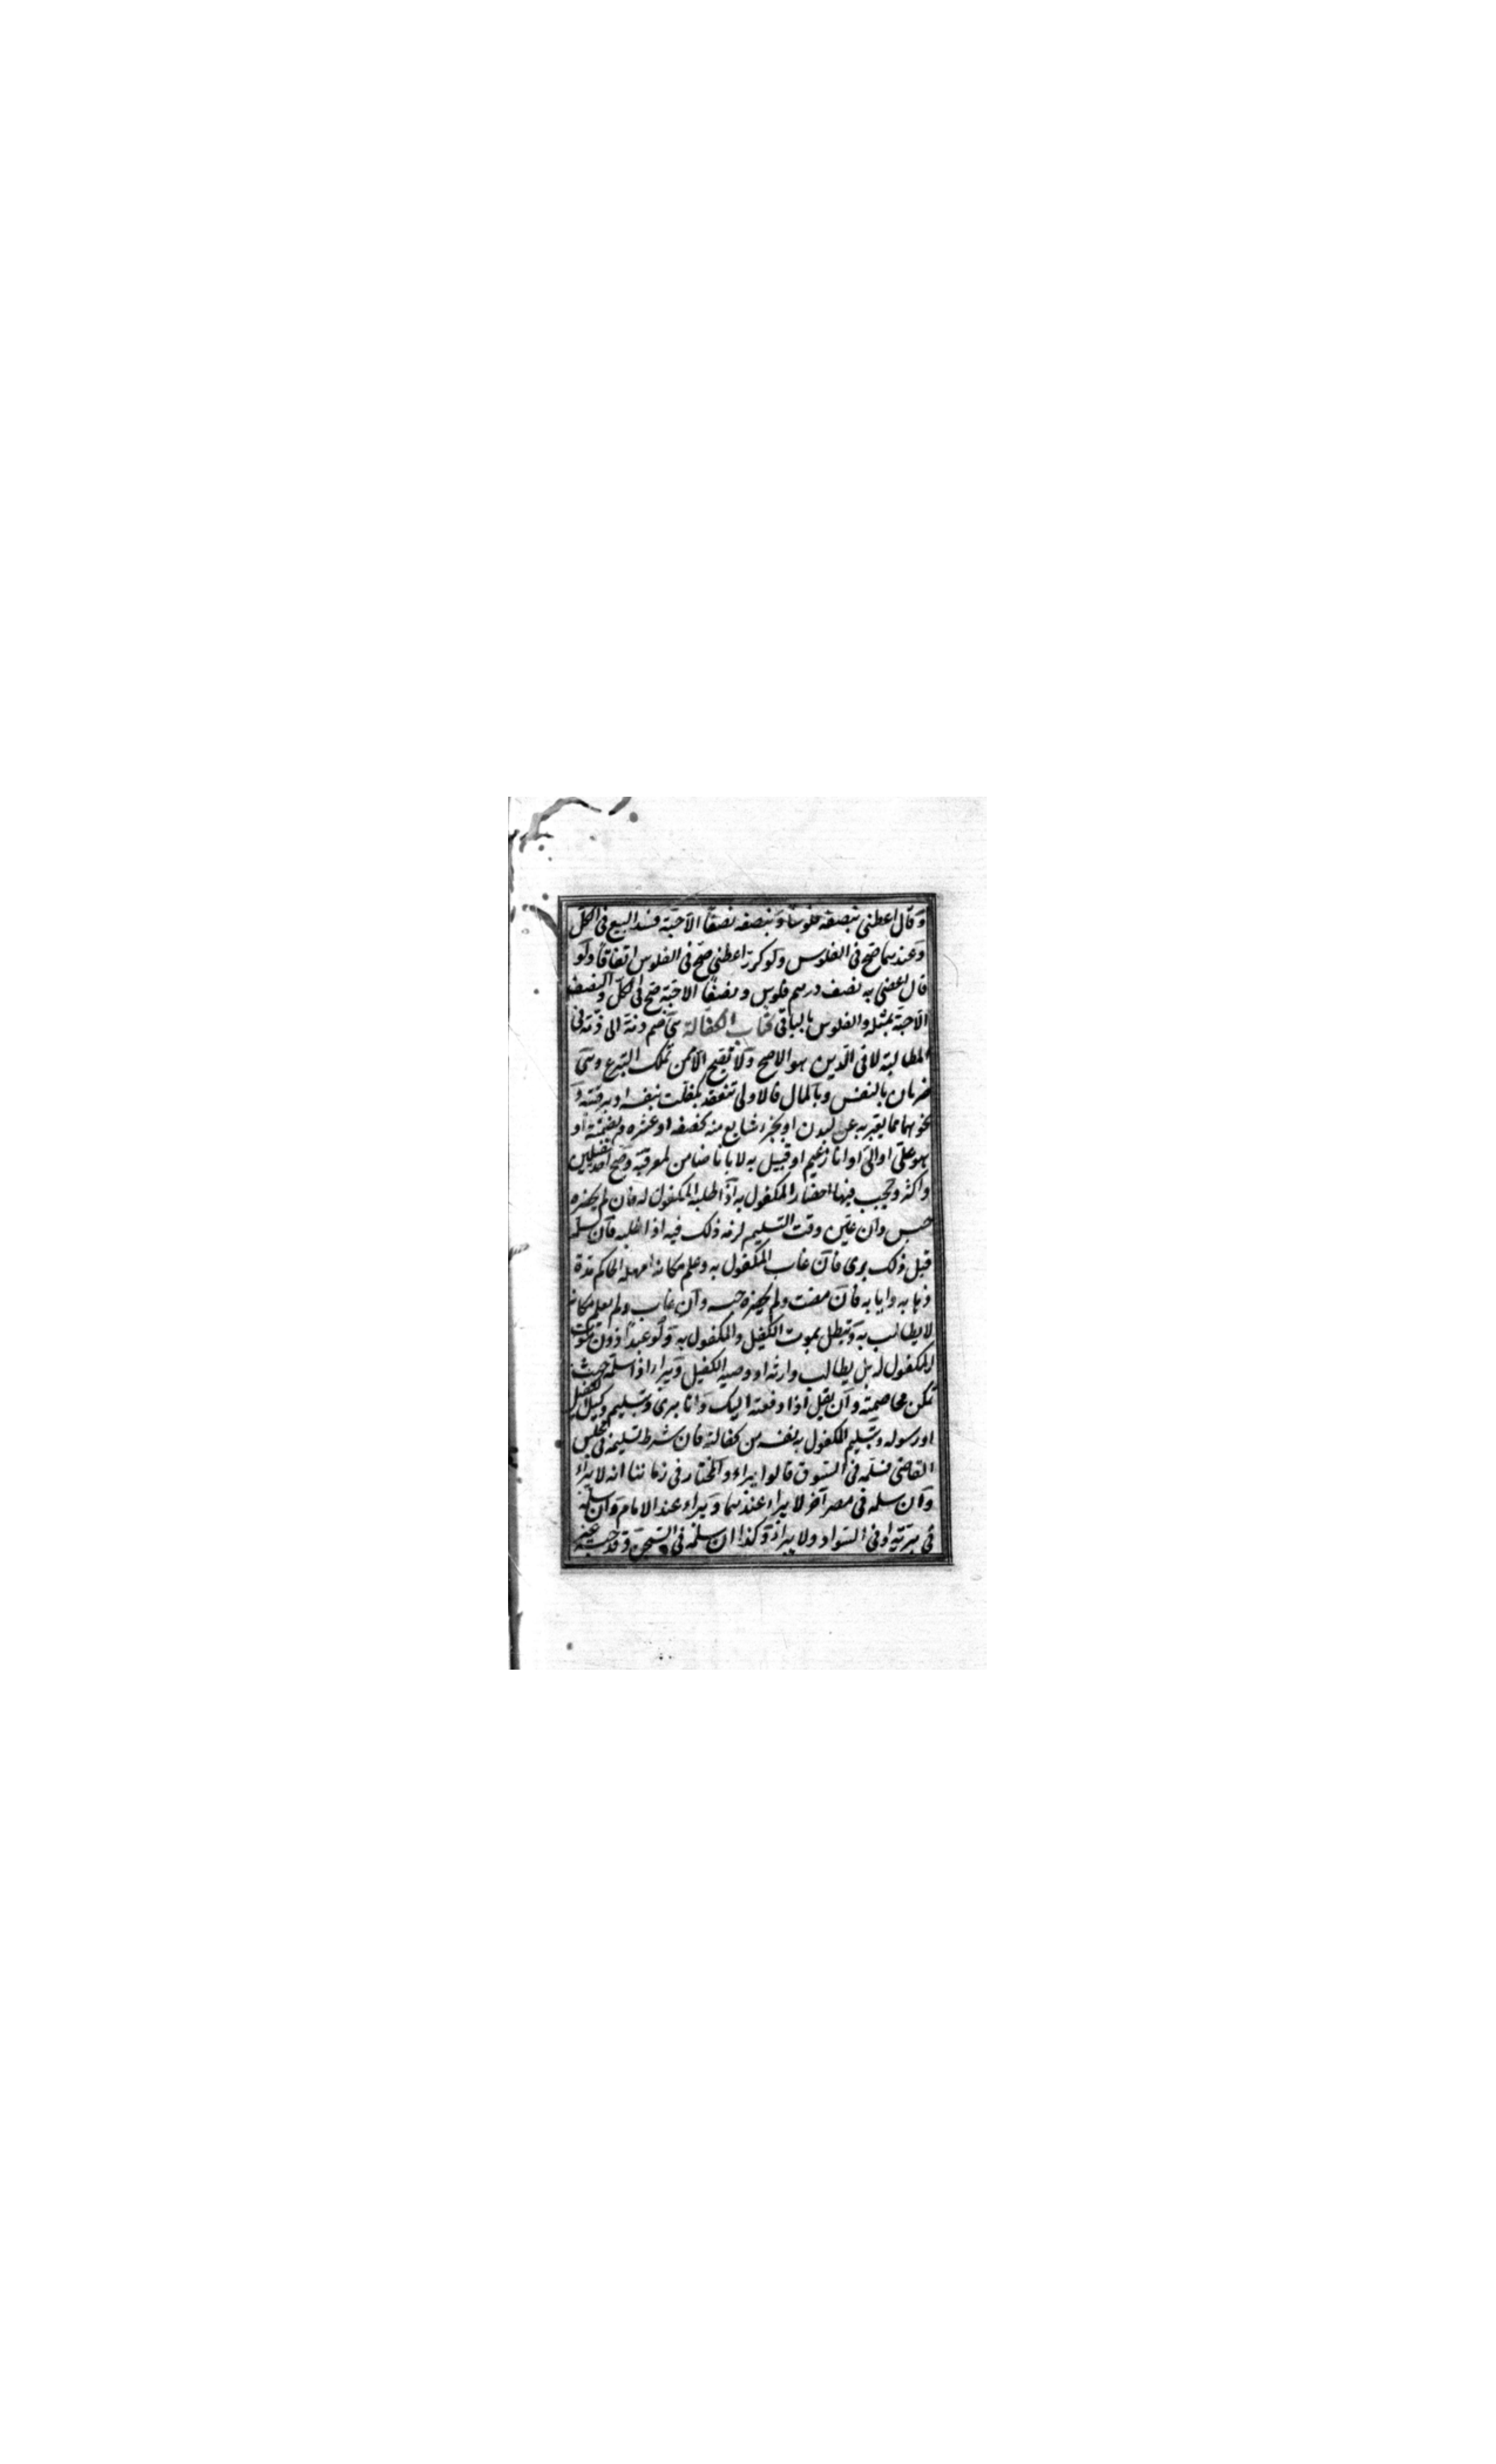 وقال اعطني بنصفه فلوسا وبنصفه نصفا الا حبة فسد البيع فى الكل
وعندهما صح فى الفلوس ولو كرر اعطني صح فى الفلوس اتفاقا ولو
قال اعطنى به نصف درهم فلوس ونصفا الا حبة صح فى الكل والنصف
الا حبة بمثله والفلوس بالباقى كتاب الكفالة هى ضم ذمة الى ذمة فى
المطالبة لا فى الدين هو الاصح ولا تصح الا ممن تملك التبرع وهى
ضربان بالنفس وبالمال فالاولى تنعقد بكفلت بنفسه او برقبته و
نحوهما مما يعبر به عن البدن او بجزء شايع منه كنصفه او عشره وبضمنته او
هو على او الى او انا زعيم او قبيل به لا بانا ضامن لمعرفته وصح اخذ كفيلين
واكثر ويجب فيها احضار المكفول به اذا طلبه المكفول له فان لم يحضره
حبس وان عين وقت التسليم لزمه ذلك فيه اذا طلبه فان سلمه
قبل ذلك برئ فان غاب المكفول به وعلم مكانه امهله الحاكم مدة
ذهابه وايابه فان مضت ولم يحضره حبسه وان غاب ولم يعلم مكانه
لا يطالب به وتبطل بموت الكفيل والمكفول به ولو عبدا دون موت
المكفول له بل يطالب وارثه او وصيه الكفيل ويبرا اذا سلمه حيث
تمكن مخاصمته وان لم يقل اذا دفعته اليك وانا برئ وبتسليم وكيل الكفيل
او رسوله وبتسليم المكفول به نفسه من كفالته فان شرط تسليمه فى مجلس
القاضى فسلمه فى السوق قالوا يبراء والمختار فى زماننا انه لا يبراء
وان سلمه فى مصر آخر لا يبراء عندهما ويبراء عند الامام وان سلمه
فى برية او فى السواد ولا يبراء وكذا ان سلمه فى السجن وقد حبسه غير